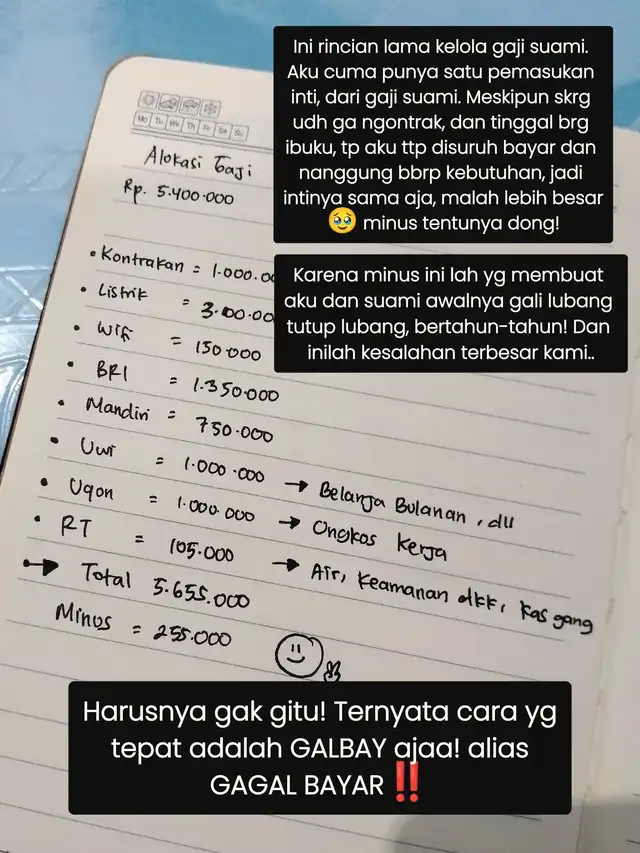 Ini rincian lama kelola gaji suami.
Aku cuma punya satu pemasukan
inti, dari gaji suami. Meskipun skrg
udh ga ngontrak, dan tinggal brg
ibuku, tp aku ttp disuruh bayar dan
nanggung bbrp kebutuhan, jadi
intinya sama aja, malah lebih besar
🥹 minus tentunya dong!
Karena minus ini lah yg membuat
aku dan suami awalnya gali lubang
tutup lubang, bertahun-tahun! Dan
inilah kesalahan terbesar kami..
Mo Tu We Th Fr Sa Su
Alokasi Gaji
Rp. 5.400.000
• Kontrakan = 1.000.00
• Listrik = 3.00.00
• Wifi = 150.000
• BRI = 1.350.000
• Mandiri = 750.000
• Uwi = 1.000.000 → Belanja Bulanan, dll
• Uqon = 1.000.000 → Ongkos Kerja
• RT = 105.000 → Air, Keamanan dkk, Kas gang
→ Total 5.655.000
Minus = 255.000
Harusnya gak gitu! Ternyata cara yg
tepat adalah GALBAY ajaa! alias
GAGAL BAYAR ‼️